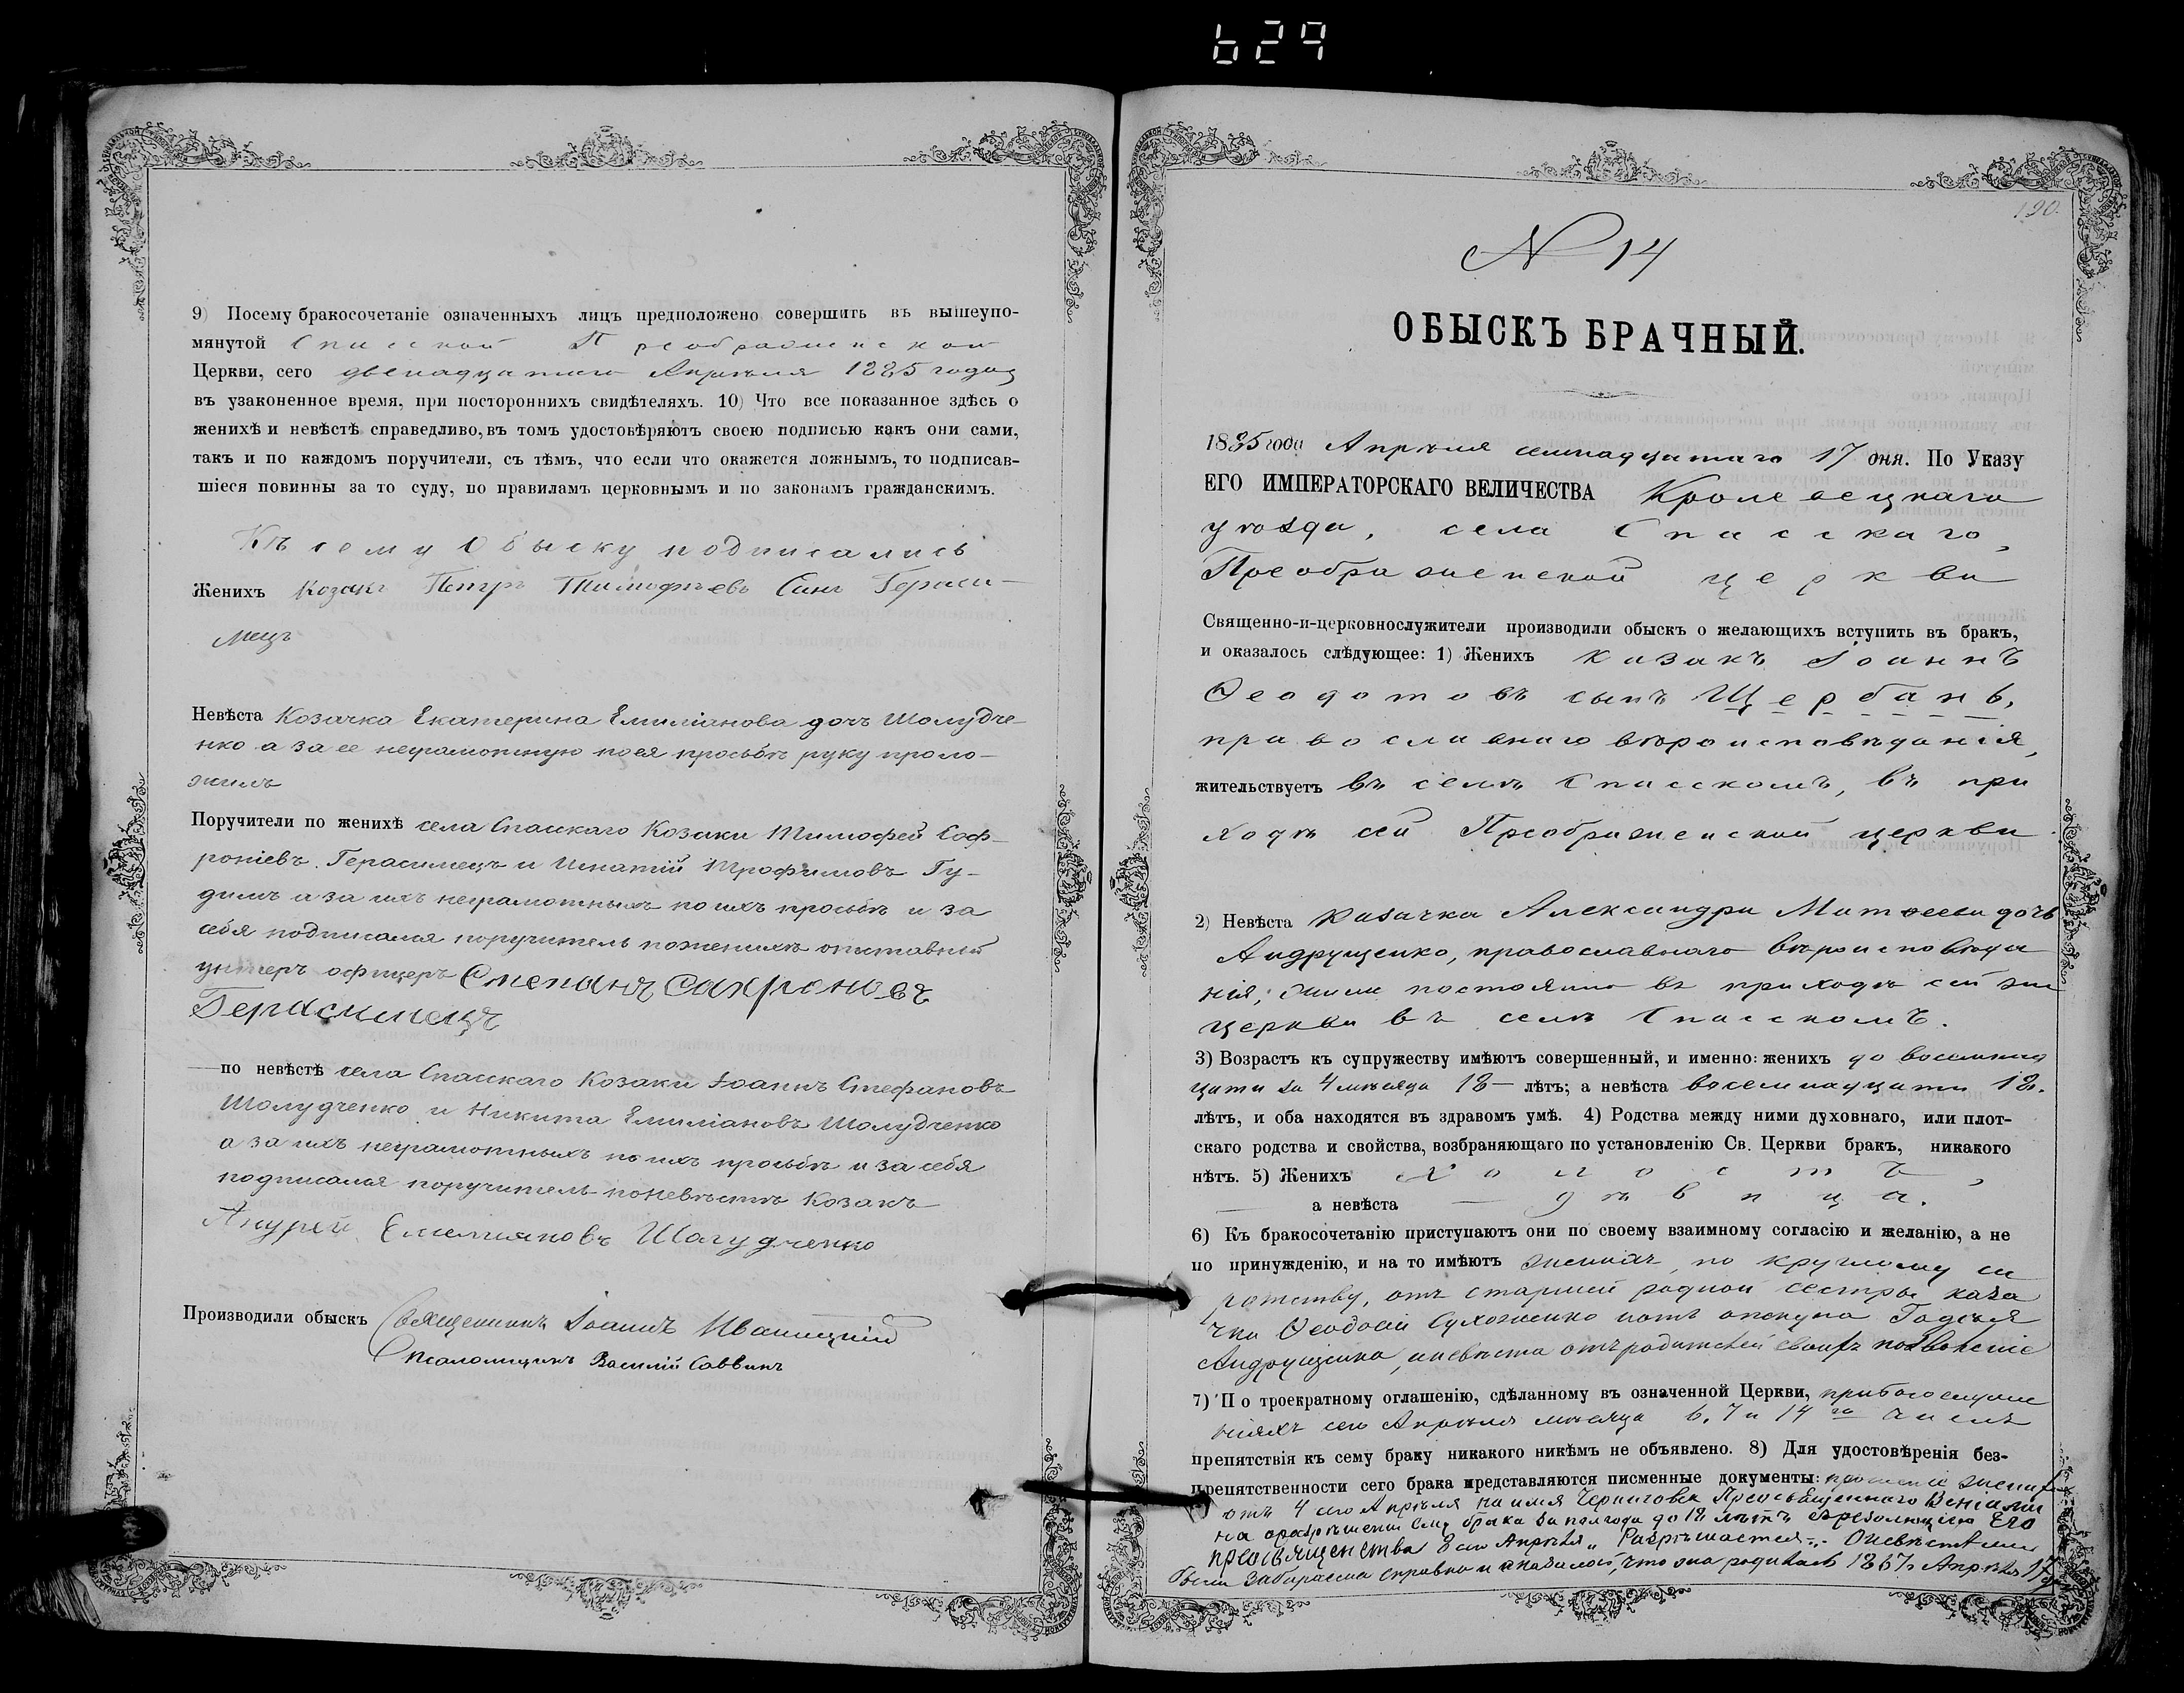 629
9) Посему бракосочетаніе означенныхъ лицъ предположено совершить въ вышеупо-
мянутой Спасской Преображенской
Церкви, сего двенадцатаго Апрѣля 1885 года
въ узаконенное время, при постороннихъ свидѣтеляхъ. 10) Что все показанное здѣсь о
женихѣ и невѣстѣ справедливо, въ томъ удостовѣряютъ своею подписью какъ они сами,
такъ и по каждомъ поручители, съ тѣмъ, что если что окажется ложнымъ, то подписав-
шіеся повинны за то суду, по правиламъ церковнымъ и по законамъ гражданскимъ.
Къ сему Обыску подписались
Женихъ Козакъ Петръ Тимофѣевъ Сынъ Гераси-
мецъ
Невѣста Козачка Екатерина Емиліанова дочъ Шолудче-
нко а за ее неграмотную по ея просьбѣ руку проло-
жилъ
Поручители по женихѣ села Спасскаго Козаки Тимофей Соф-
роніевъ Герасимецъ и Игнатій Трофимовъ Гу-
димъ а за ихъ неграмотныхъ по ихъ просьбѣ и за
себя подписался поручитель по женихѣ отставный
унтеръ офицеръ Степанъ Сахроновъ
Герасимецъ
по невѣстѣ села Спасскаго Козаки Іоаннъ Стефановъ
Шолудченко и Никита Емиліановъ Шолудченко
а за ихъ неграмотныхъ по ихъ просьбѣ и за себя
подписался поручитель по невѣстѣ Козакъ
Андрей Емельяновъ Шолудченко
Производили обыскъ Священникъ Іоаннъ Иваницкій
Псаломщикъ Василій Саввинъ
190.
N 14
ОБЫСКЪ БРАЧНЫЙ.
1885 года Апрѣля семнадцатаго 17 дня. По Указу
ЕГО ИМПЕРАТОРСКАГО ВЕЛИЧЕСТВА Кролевецкаго
уѣзда, села Спасскаго,
Преображенской церкви
Священно-и-церковнослужители производили обыскъ о желающихъ вступить въ бракъ,
и оказалось слѣдующее: 1) Женихъ казакъ Іоаннъ
Ѳеодотовъ сынъ Щербань,
православнаго вѣроисповѣданія,
жительствуетъ въ селѣ Спасскомъ, въ при
ходѣ сей Преображенской церкви
2) Невѣста казачка Александра Матѳеева дочь
Андрущенко, православнаго вѣроисповѣда
нія, жила постоянно въ приходѣ сей же
церкви въ селѣ Спасскомъ.
3) Возрастъ къ супружеству имѣютъ совершенный, и именно: женихъ до восемнад
цати за 4 мѣсяца 18 — лѣтъ; а невѣста восемнадцати 18.
лѣтъ, и оба находятся въ здравомъ умѣ. 4) Родства между ними духовнаго, или плот-
скаго родства и свойства, возбраняющаго по установленію Св. Церкви бракъ, никакого
нѣтъ. 5) Женихъ Холостъ,
а невѣста — дѣвица.
6) Къ бракосочетанію приступаютъ они по своему взаимному согласію и желанію, а не
по принужденію, и на то имѣютъ женихъ, по круглому си
ротству, отъ старшей родной сестры каза
чки Ѳеодосіи опекуна
Андрущенка, а невѣста отъ родителей своихъ позволеніе
7) По троекратному оглашенію, сдѣланному въ означенной Церкви, при богослуже
ніяхъ сего Апрѣля мѣсяца 6, 7 и 14 го числъ
препятствія къ сему браку никакого никѣмъ не объявлено. 8) Для удостовѣренія без-
препятственности сего брака представляются писменные документы: прошеніе жениха
отъ 4 сего Апрѣля на имя Преосвященнаго Веніами
на о разрѣшеніи ему брака за полгода до 18 лѣтъ съ резолюціею Его
преосвященства 8 сего Апрѣля „Разрѣшается". О невѣстѣ
была забираема справка и оказалось, что она родилась 1867 г. Апрѣля 17